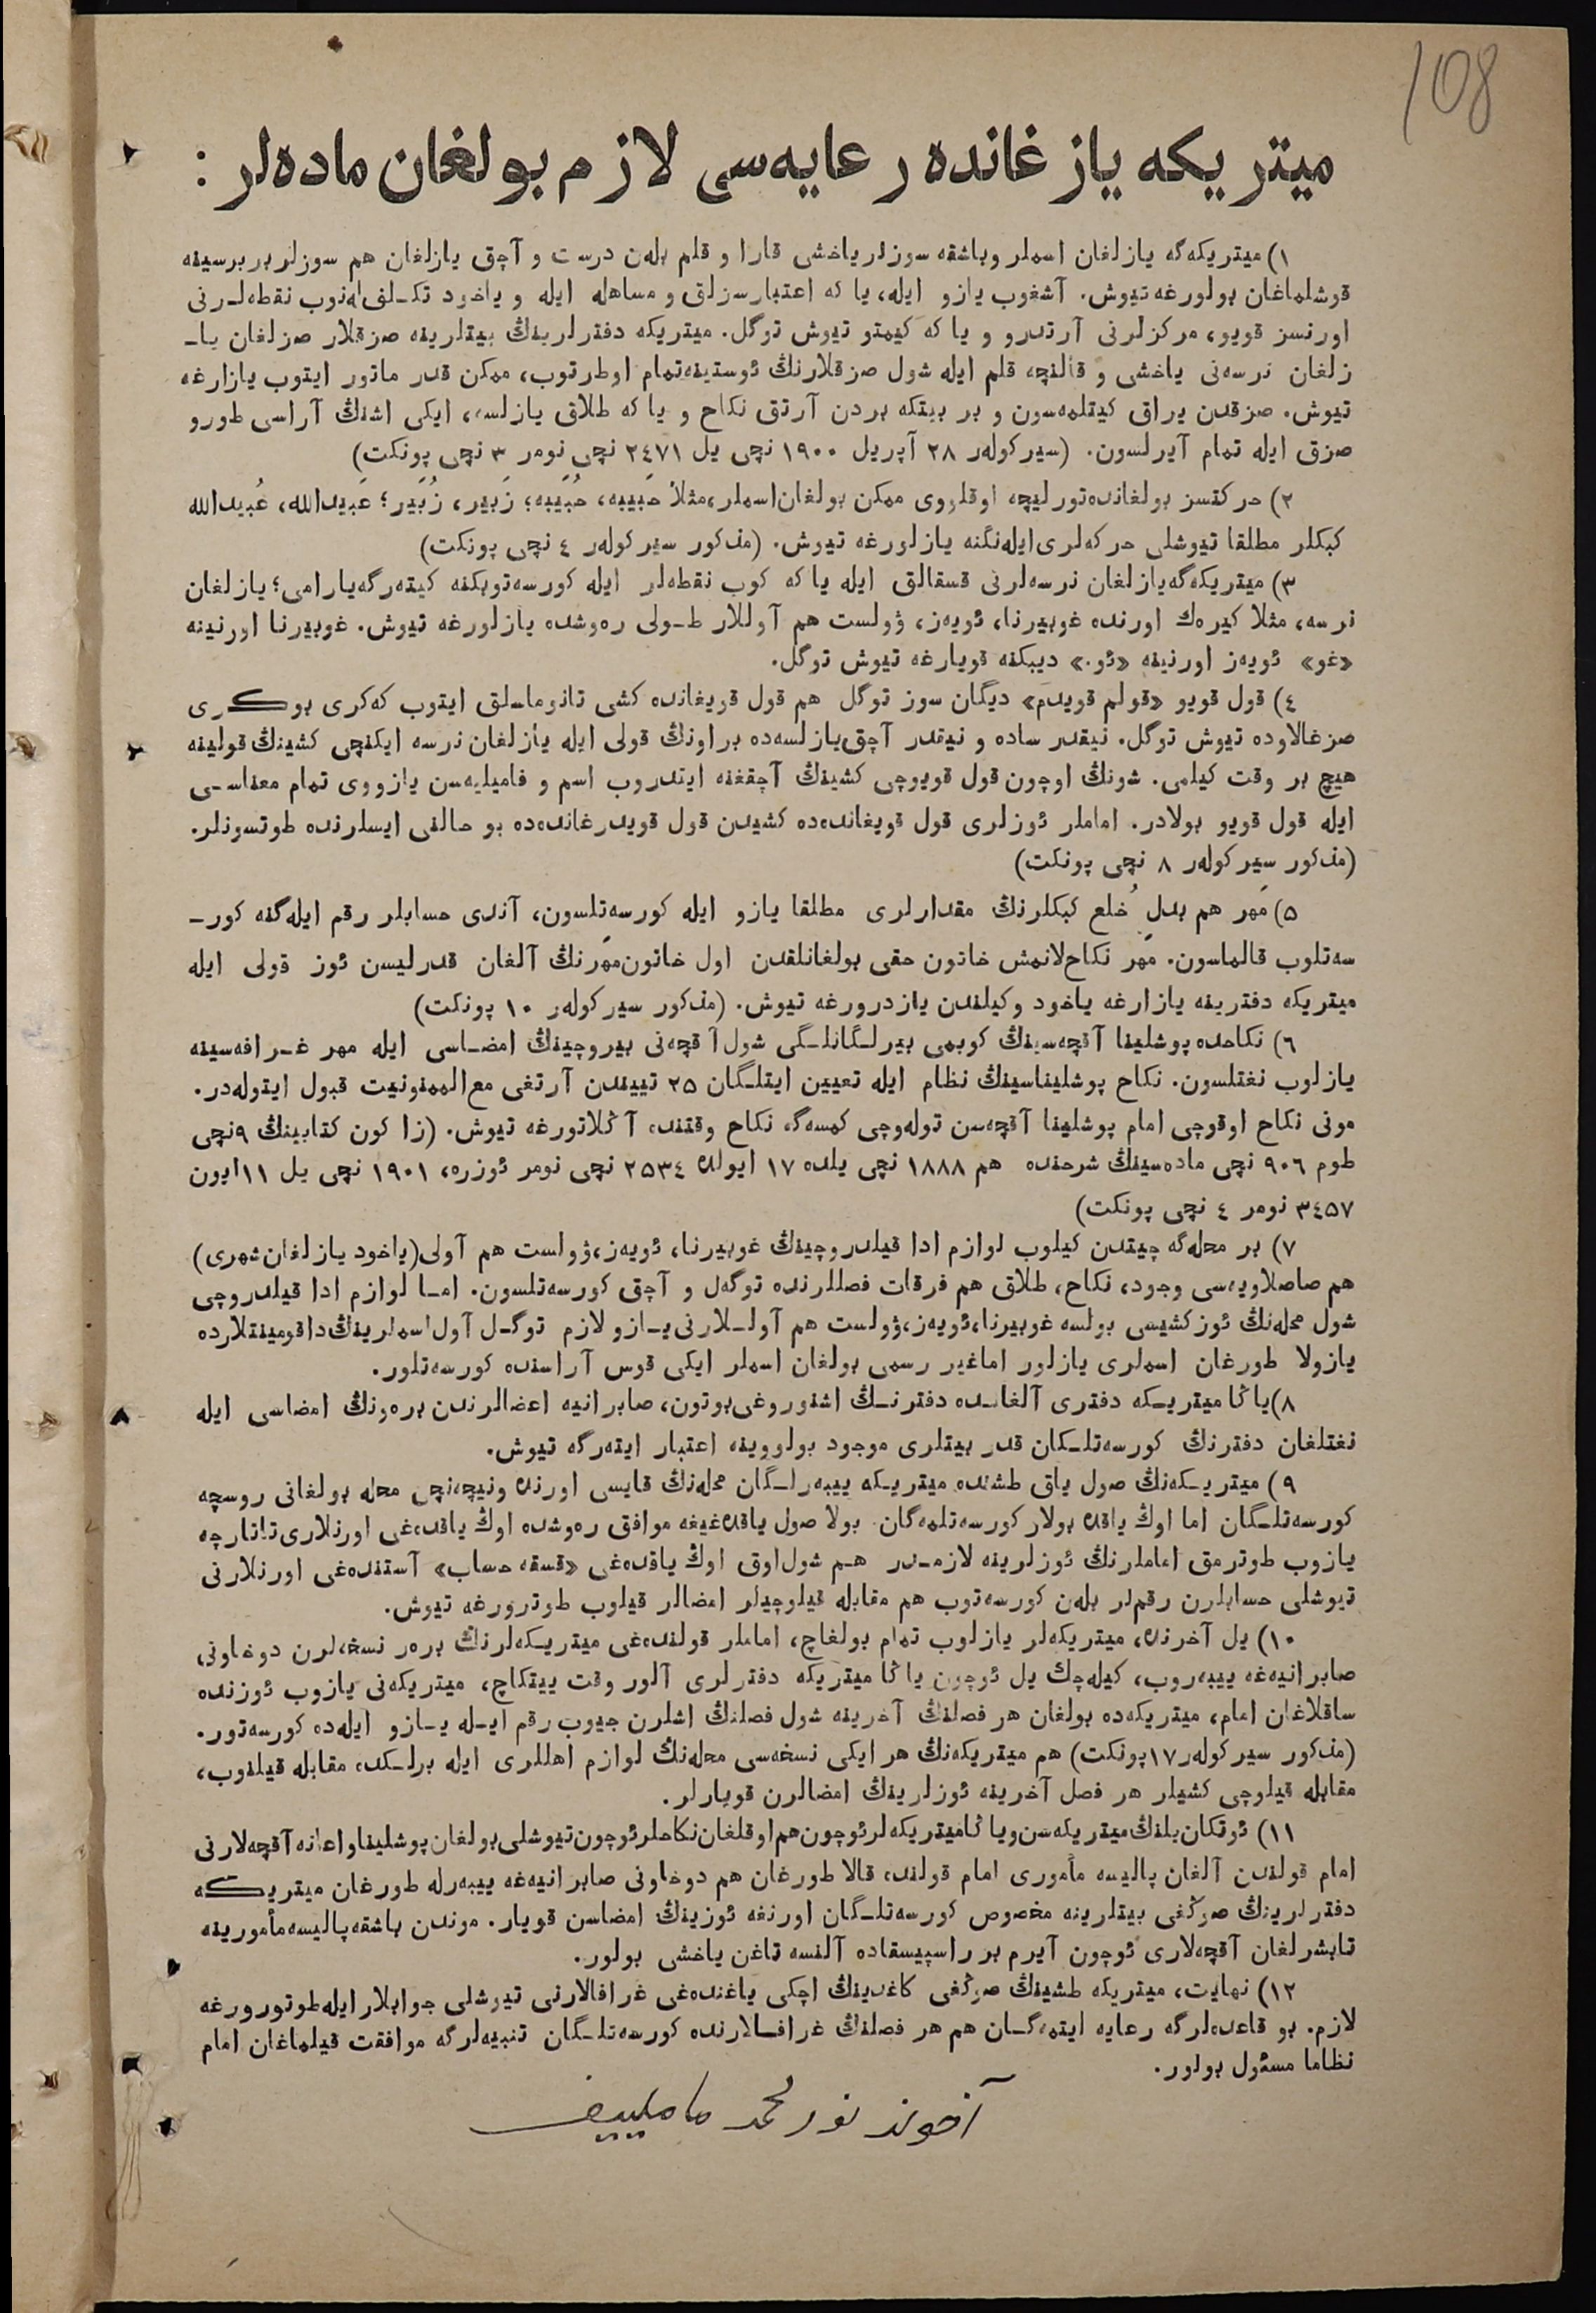 108
ميتريكه يازغانده رعايه‌سى لازم بولغان ماده‌لر :
١) ميتريكه‌گه يازلغان اسملر وباشقه سوزلر ياخشى قارا و قلم بله‌ن درست و آچق يازلغان هم سوزلر بربرسينه
قوشلماغان بولورغه تيوش. آشغوب يازو ايله، يا كه اعتبارسزلق و مساهله ايله و ياخود تكـلفله‌نوب نقطه‌لـرنى
اورنسز قويو، مركزلرنى آرتدرو و يا كه كيمتو تيوش توگل. ميتريكه دفترلرينڭ بيتلرينه صزقلار صزلغان ياـ
زلغان نرسه‌نى ياخشى و قالنچه قلم ايله شول صزقلارنڭ ئوستينه‌تمام اوطرتوب، ممكن قدر ماتور ايتوب يازارغه
تيوش. صزقدن يراق كيتلمه‌سون و بر بيتكه بردن آرتق نكاح و يا كه طلاق يازلسه، ايكى اشنڭ آراسى طورو
صزق ايله تمام آيرلسون. (سيركوله‌ر ٢٨ آپريل ١٩٠٠ نچى يل ٢٤٧١ نچى نومر ٣ نچى پونكت)
٢) حركتسز بولغانده‌تورليچه اوقلووى ممكن بولغان‌اسملر،مثلا حَبيبه، حُبَيبه؛ زَبير، زُبَير؛ عَبيدالله، عُبيدالله
كبكلر مطلقا تيوشلى حركه‌لرى‌ايله‌نگنه يازلورغه تيوش. (مذكور سيركوله‌ر ٤ نچى پونكت)
٣) ميتريكه‌گه‌يازلغان نرسه‌لرنى قسقالق ايله يا كه كوب نقطه‌لر ايله كورسه‌توبكنه كيته‌رگه‌يارامى؛ يازلغان
نرسه، مثلا كيره‌ك اورنده غوبيرنا، ئويه‌ز، ۋولست هم آوللار طـولى ره‌وشده يازلورغه تيوش. غوبيرنا اورنينه
«غو» ئويه‌ز اورنينه «ئو.» ديبكنه قويارغه تيوش توگل.
٤) قول قويو «قولم قويدم» ديگان سوز توگل هم قول قويغانده كشى تانوماسلق ايتوب كه‌كرى بوكـرى
صزغالاوده تيوش توگل. نيقدر ساده و نيقدر آچق‌يازلسه‌ده براونڭ قولى ايله يازلغان نرسه ايكنچى كشينڭ قولينه
هيچ بر وقت كيلمى. شونڭ اوچون قول قويوچى كشينڭ آچقغنه ايتدروب اسم و فاميليه‌سن يازووى تمام معناسـى
ايله قول قويو بولادر. اماملر ئوزلرى قول قويغانده‌ده كشيدن قول قويدرغانده‌ده بو حالنى ايسلرنده طوتسونلر.
(مذكور سيركوله‌ر ٨ نچى پونكت)
٥) مَهر هم بدلِ خُلع كبكلرنڭ مقدارلرى مطلقا يازو ايله كورسه‌تلسون، آندى حسابلر رقم ايله‌گنه كورـ
سه‌تلوب قالماسون. مَهر نكاح‌لانمش خاتون حقى بولغانلقدن اول خاتون‌مَهرنڭ آلغان قدرليسن ئوز قولى ايله
ميتريكه دفترينه يازارغه ياخود وكيلندن يازدرورغه تيوش. (مذكور سيركوله‌ر ١٠ پونكت)
٦) نكاحده پوشلينا آقچه‌سينڭ كوبمى بيرلـگانلـگى شول آقچه‌نى بيروچينڭ امضـاسى ايله مهر غـرافه‌سينه
يازلوب نغتلسون. نكاح پوشليناسينڭ نظام ايله تعيين ايتلـگان ٢٥ تييندن آرتغى مع‌الممنونيت قبول ايتوله‌در.
مونى نكاح اوقوچى امام پوشلينا آقچه‌سن توله‌وچى كمسه‌گه نكاح وقتنده آڭلاتورغه تيوش. (زاكون كتابينڭ ٩نچى
طوم ٩٠٦ نچى ماده‌سينڭ شرحنده هم ١٨٨٨ نچى يلده ١٧ ايولده ٢٥٣٤ نچى نومر ئوزره، ١٩٠١ نچى يل ١١ايون
٣٤٥٧ نومر ٤ نچى پونكت)
٧) بر محله‌گه چيتدن كيلوب لوازم ادا قيلدروچينڭ غوبيرنا، ئويه‌ز،ۋولست هم آولى(ياخود يازلغان‌شهرى)
هم صاصلاويه‌سى وجود، نكاح، طلاق هم فرقات فصللرنده توگه‌ل و آچق كورسه‌تلسون. امـا لوازم ادا قيلدروچى
شول محله‌نڭ ئوزكشيسى بولسه غوبيرنا،ئويه‌ز،ۋولست هم آولـلارنى يـازو لازم توگـل آول‌اسملرينڭ‌داقومينتلارده
يازولا طورغان اسملرى يازلور اماغير رسمى بولغان اسملر ايكى قوس آراسنده كورسه‌تلور.
٨)ياڭا ميتريـكه دفترى آلغانـده دفترنـڭ اشنوروغى‌بوتون، صابرانيه اعضالرندن بره‌ونڭ امضاسى ايله
نغتلغان دفترنڭ كورسه‌تلـكان قدر بيتلرى موجود بولووينه اعتبار ايته‌رگه تيوش.
٩) ميتريـكه‌نڭ صول ياق طشنده ميتريـكه ييبه‌رلـگان محله‌نڭ قايسى اورنده ونيچه‌نچى محله بولغانى روسچه
كورسه‌تلـگان اما اوڭ ياقده بولار كورسه‌تلمه‌گان. بولا صول ياقده‌غيغه موافق ره‌وشده اوڭ ياقده‌غى اورنلارى تاتارچه
يازوب طوترمق اماملرنڭ ئوزلرينه لازمـدر هـم شول‌اوق اوڭ ياقده‌غى «قسقه حساب» آستنده‌غى اورنلارنى
تيوشلى حسابلرن رقملر بله‌ن كورسه‌توب هم مقابله قيلوچيلر امضالر قيلوب طوترورغه تيوش.
١٠) يل آخرنده، ميتريكه‌لر يازلوب تمام بولغاچ، اماملر قولنده‌غى ميتريـكه‌لرنڭ بره‌ر نسخه‌لرن دوخاونى،
صابرانيه‌غه ييبه‌روب، كيله‌چك يل ئوچون ياڭا ميتريكه دفترلرى آلور وقت ييتكاچ، ميتريكه‌نى يازوب ئوزنده
ساقلاغان امام، ميتريكه‌ده بولغان هر فصلنڭ آخرينه شول فصلنڭ اشلرن جيوب رقم ايـله يـازو ايله‌ده كورسه‌تور.
(مذكور سيركوله‌ر ١٧پونكت) هم ميتريكه‌نڭ هر ايكى نسخه‌سى محله‌نڭ لوازم اهللرى ايله برلـكده مقابله قيلنوب،
مقابله قيلوچى كشيلر هر فصل آخرينه ئوزلرينڭ امضالرن قويارلر.
١١) ئوتكان‌يلنڭ‌ميتريكه‌سن‌وياڭاميتريكه‌لرئوچون‌هم‌اوقلغان‌نكاحلرئوچون‌تيوشلى‌بولغان‌پوشليناواعانه‌آقچه‌لارنى
امام قولندن آلغان پاليسه مأمورى امام قولنده قالا طورغان هم دوخاونى صابرانيه‌غه ييبه‌رله طورغان ميتريـكه
دفترلرينڭ صوڭغى بيتلرينه مخصوص كورسه‌تلـگان اورنغه ئوزينڭ امضاسن قويار. موندن باشقه‌پاليسه‌مأمورينه
تابشرلغان آقچه‌لارى ئوچون آيرم بر راسپيسقاده آلنسه تاغن ياخشى بولور.
١٢) نهايت، ميتريكه طشينڭ صوڭغى كاغدينڭ اچكى ياغنده‌غى غرافالارنى تيوشلى جوابلارايله‌طوتورورغه
لازم. بو قاعده‌لرگه رعايه ايتمه‌گـان هم هر فصلنڭ غرافـالارنده كورسه‌تلـگان تنبيه‌لرگه موافقت قيلماغان امام
نظاما مسئول بولور.
آخوند نورمحمد مامليييف